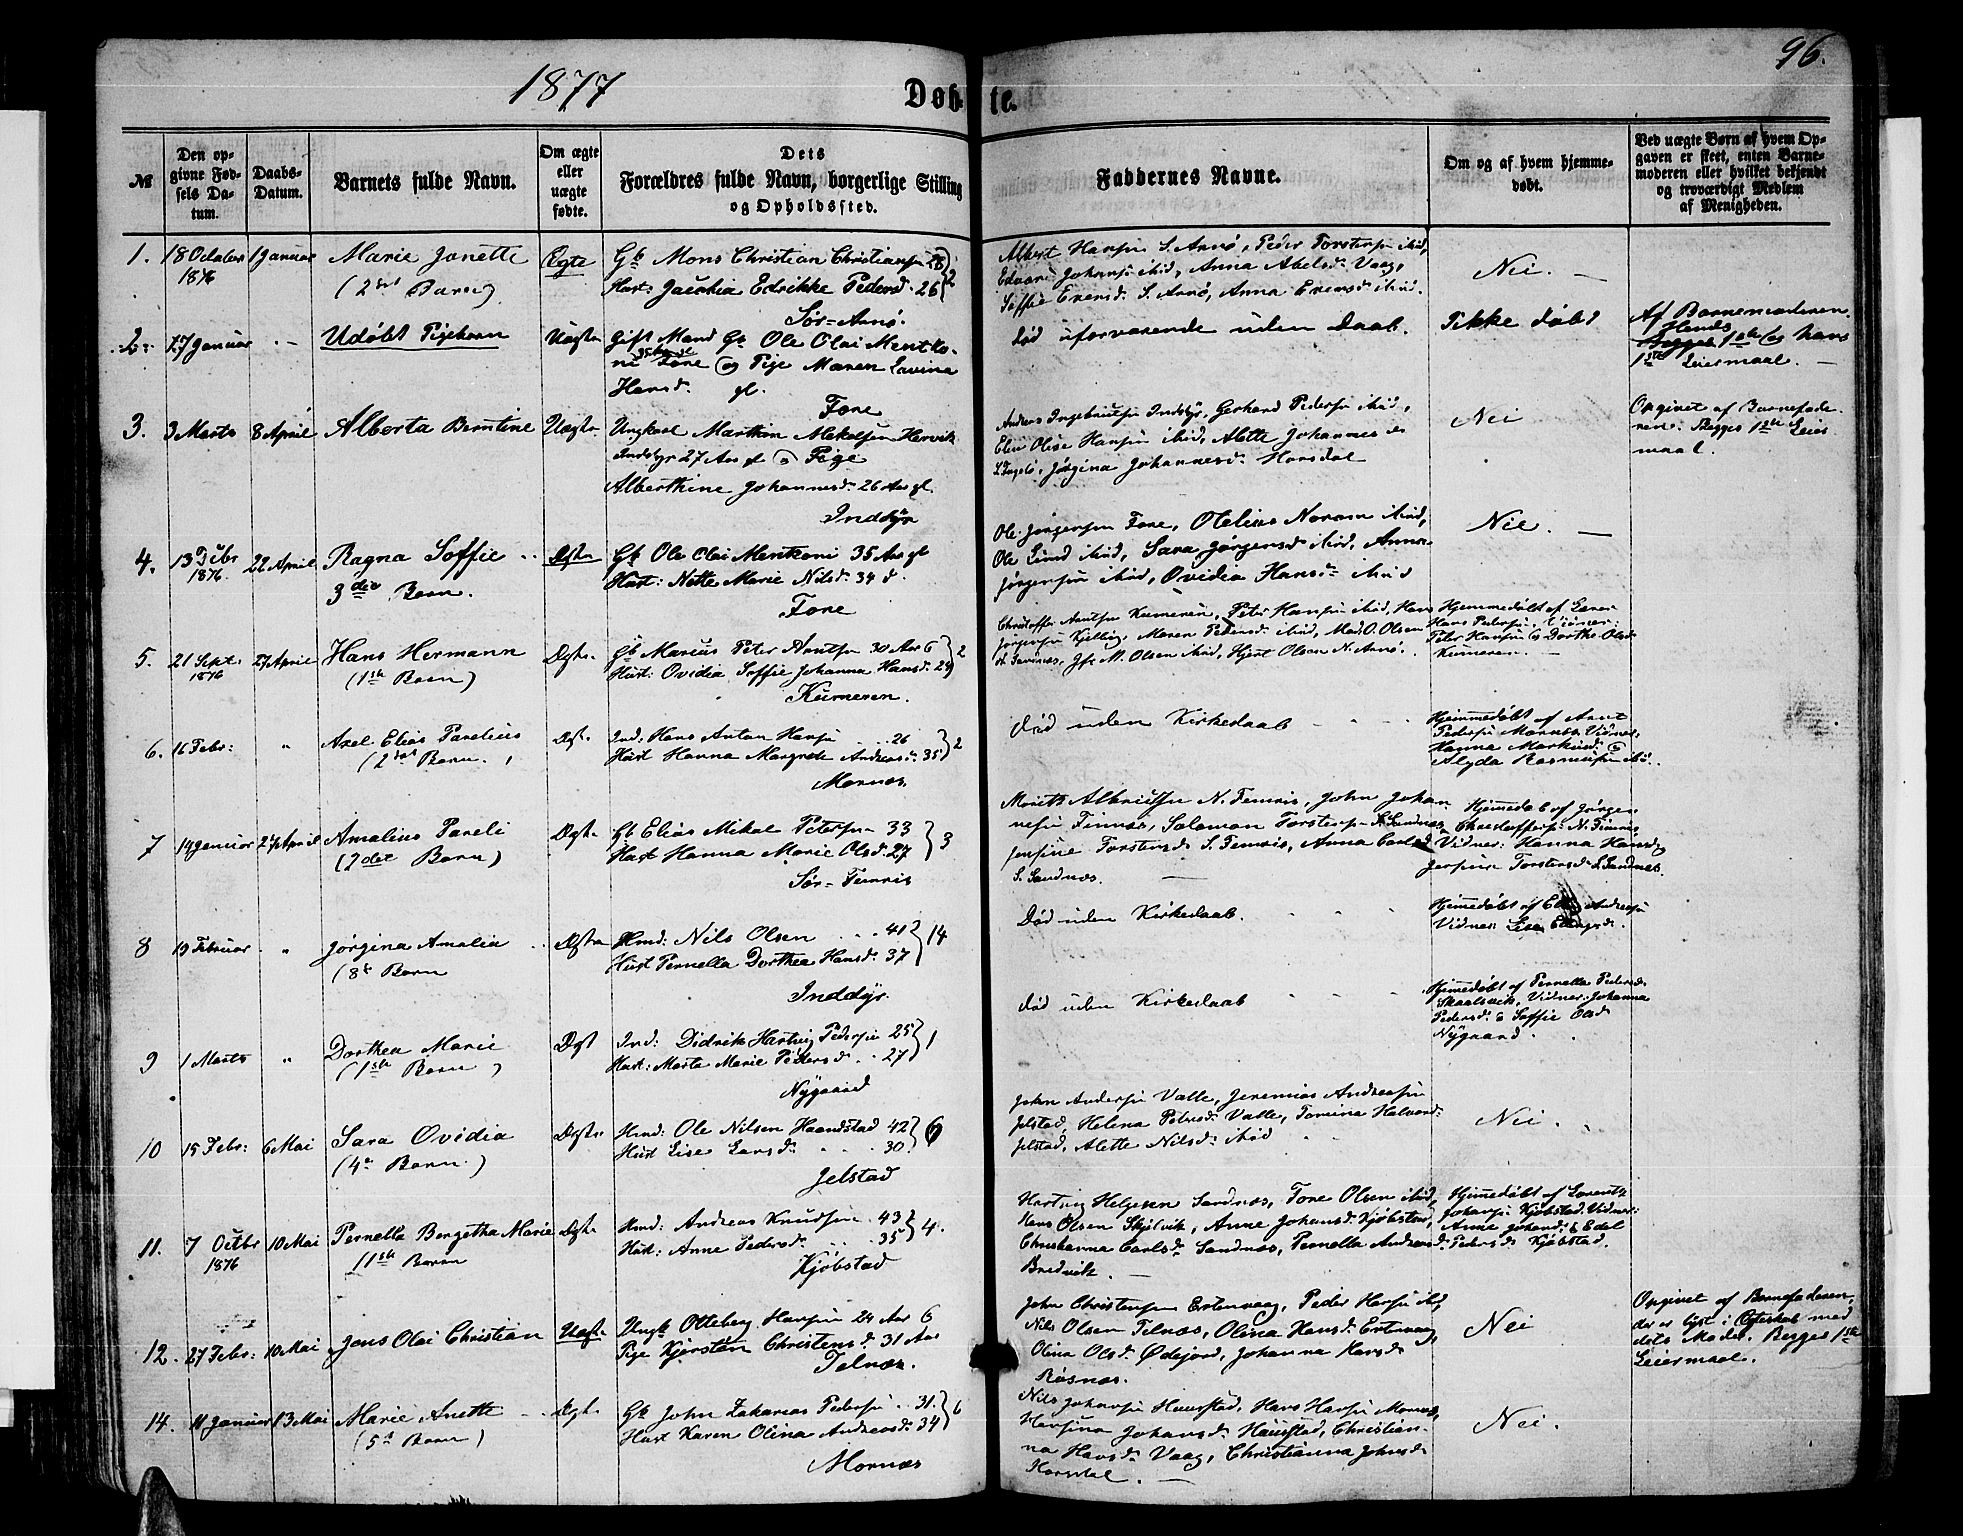 1877
Døbte.
96.
№
Den opgivne Fødsels Datum.
Daabs-Datum.
Barnets fulde Navn.
Om ægte eller uægte fødte.
Dets Forældres fulde Navn, borgerlige Stilling og Opholdssted.
Faddernes Navne.
Om og af hvem hjemmedøbt.
Ved uægte Børn af hvem Opgaven er skeet, enten Barnemoderen eller hvilket bekjendt og troværdigt Medlem af Menigheden.
1. 18 October 1876 1 Januar Marie Janette Ægte Gb Mons Christian
(2det Barn) Hust: Edrikke Pedersd. 26
Sør-Arnø.
Albert Hansen S. Arnø, Peder Torstensen ibid,
Johansen ibid, Anna Abelsd. Vaag,
Soffie Evensd. S. Arnø, Anna Evensd. ibid.
Nei. —
2. 27 Januar Udøbt Pigebarn Uægte Gift Mand Gb Ole Olai Mentko-
ni Fore og Pige Maren Lavina
Hansd. gl.
Fore
død uforvarende uden Daab.
Ikke døbt
Af Barnemoderen.
Hendes 1ste og hans
1ste Leiermaal. —
3. 3 Marts 8 April Alberta Berntine Uægte Ungkarl Marthin Mekalsen
Inddyr 27 Aar og Pige
Alberthine Johannesd. 26 Aar gl.
Inddyr
Anders Ingebrigtsen Inddyr, Gerhard Pedersen ibid,
Elen Olise Hansen ibid, Alette Johannesd.
Jørgina Johannesd. Horsdal
Nei
Opgivet af Barnefade-
ren. Begges 1ste Leier
maal.
4. 13 Debr 1876. 22 April Ragna Soffie Ægte Gb Ole Olai Mentkoni 35 Aar gl
3die Barn. Hust: Nette Marie Nilsd. 34 d.
Fore
Ole Jørgensen Fore, Otelius Norum ibid,
Ole Lund ibid, Sara Jørgensd ibid, Anna
Jørgensen ibid, Ovidia Hansd. ibid
Nei. —
5. 21 Sept. 1876 27 April Hans Hermann Ægte. Gb Marius Peter Arntsen 30 Aar 6 2
(1ste Barn) Hust: Ovidia Soffie Johanna Hansd. 29
Kunneren.
Christoffer Arntsen Kunneren, Peter Hansen ibid, Hans
Jørgensen Kjelling, Maren Pedersd. ibid, Mad. O. Olsen
M. Olsen ibid, Hjert Olsen N. Arnø.
Hjemmedøbt af
Hans Pedersen, Vidner:
Peter Hansen og Dorthe Olsd.
Kunneren. —
6. 16 Febr: " Axel Elias Parelius Ægt. Ind: Hans Anton Hansen 26 2
(2det Barn.) Hust Hanna Margrete Andreasd. 35
Mornæs.
Død uden Kirkedaab
Hjemmedøbt af Arnt
Pedersen Mornæs, Vidner:
Hanna Markusd. og
Alyda Rasmussen ibi.
7 14 Januar 27 April Amalius Pareli Ægte Gb Elias Mikal Petersen 33 3
(2det Barn) Hust Hanna Marie Olsd. 27
Sør-Femris
Albrigtsen N. Femris, John Johan
nesen Finnæs, Salomon Torstensen S. Sandnæs,
Jensine Torstensd. S. Femris, Anna Carlsd.
S. Sandnæs. —
Hjemmedøbt af Jørgen
Christoffersen N. Femris
Vidner: Hanna Hansd
Jensine Torstensd. S. Sandnæs.
8 19 Februar " Jørgina Amalia Ægte Hmd: Nils Olsen 41 14
(8de Barn Hust Pernella Dorthea Hansd. 37
Inddyr.
Død uden Kirkedaab.
Hjemmedøbt af Andreasen
Vidner: Lise Ellingsd.
9 1 Marts " Dorthea Marie Ægt Ind: Didrik Hartvig Pedersen 25 1
(1ste Barn) Hust: Marta Marie Pedersd. 27
Nygaard
død uden Kirkedaab
Hjemmedøbt af Pernella Pedersd.
Skaalsvik, Vidner: Johanna
Pedersd. & Soffie Olsd
Nygaard
10 15 Febr: 6 Mai Sara Ovidia Ægte. Hmd: Ole Nilsen Haandstad 42 6
(4de Barn) Hust Lise Larsd. 30
Jelstad
John Andersen Valle, Jeremias Andreasen
Jelstad, Helena Petersd. Valle, Tomina Halvord.
Jelstad, Alette Nilsd. ibid
Nei.
11. 7 Octbr 1876 10 Mai Pernella Bergetha Marie Ægt. Hmd: Andreas Knudsen 43 4.
11te Barn Hust: Anne Pedersd. 35
Kjøbstad
Hartvig Helgesen Sandnæs, Tore Olsen ibid,
Hans Olsen Skjelvik, Anne Johansd. Kjøbstad,
Christianna Carlsd. Sandnæs, Pernella Andreasd.
Bredvik. —
Hjemmedøbt af Lorents
Johansen Kjøbstad. Vidner:
Anne Johansd. & Edel
Pedersd. Kjøbstad.
12. 27 Febr: 10 Mai Jens Olai Christian Uægt. Ungk Otteberg Hansen 24 Aar 6
Pige Kjersten Christensd. 31 Aar
Telnæs.
John Christensen Ertenvaag, Peder Hansen ibid,
Nils Olsen Telnæs, Olina Hansd. Ertenvaag,
Olina Olsd. Ødejord, Johanna Hansd.
Røsnæs.
Nei
Opgivet af Barnefaderen,
der er lyst i Ægteskab med
dets Moder. Begges 1ste
Leiermaal.
14. 11 Januar 13 Mai Marie Anette Ægt. Gb John Zakarias Pedersen 31. 6
(5te Barn) Hust Karen Olina Andreasd. 34
Mornæs
Nils Johansen Haugstad, Hans Hansen Mornæs,
Hansina Johansd. Haugstad, Christian-
na Hansd. Vaag, Christianna Johnsd.
Horsdal. —
Nei.